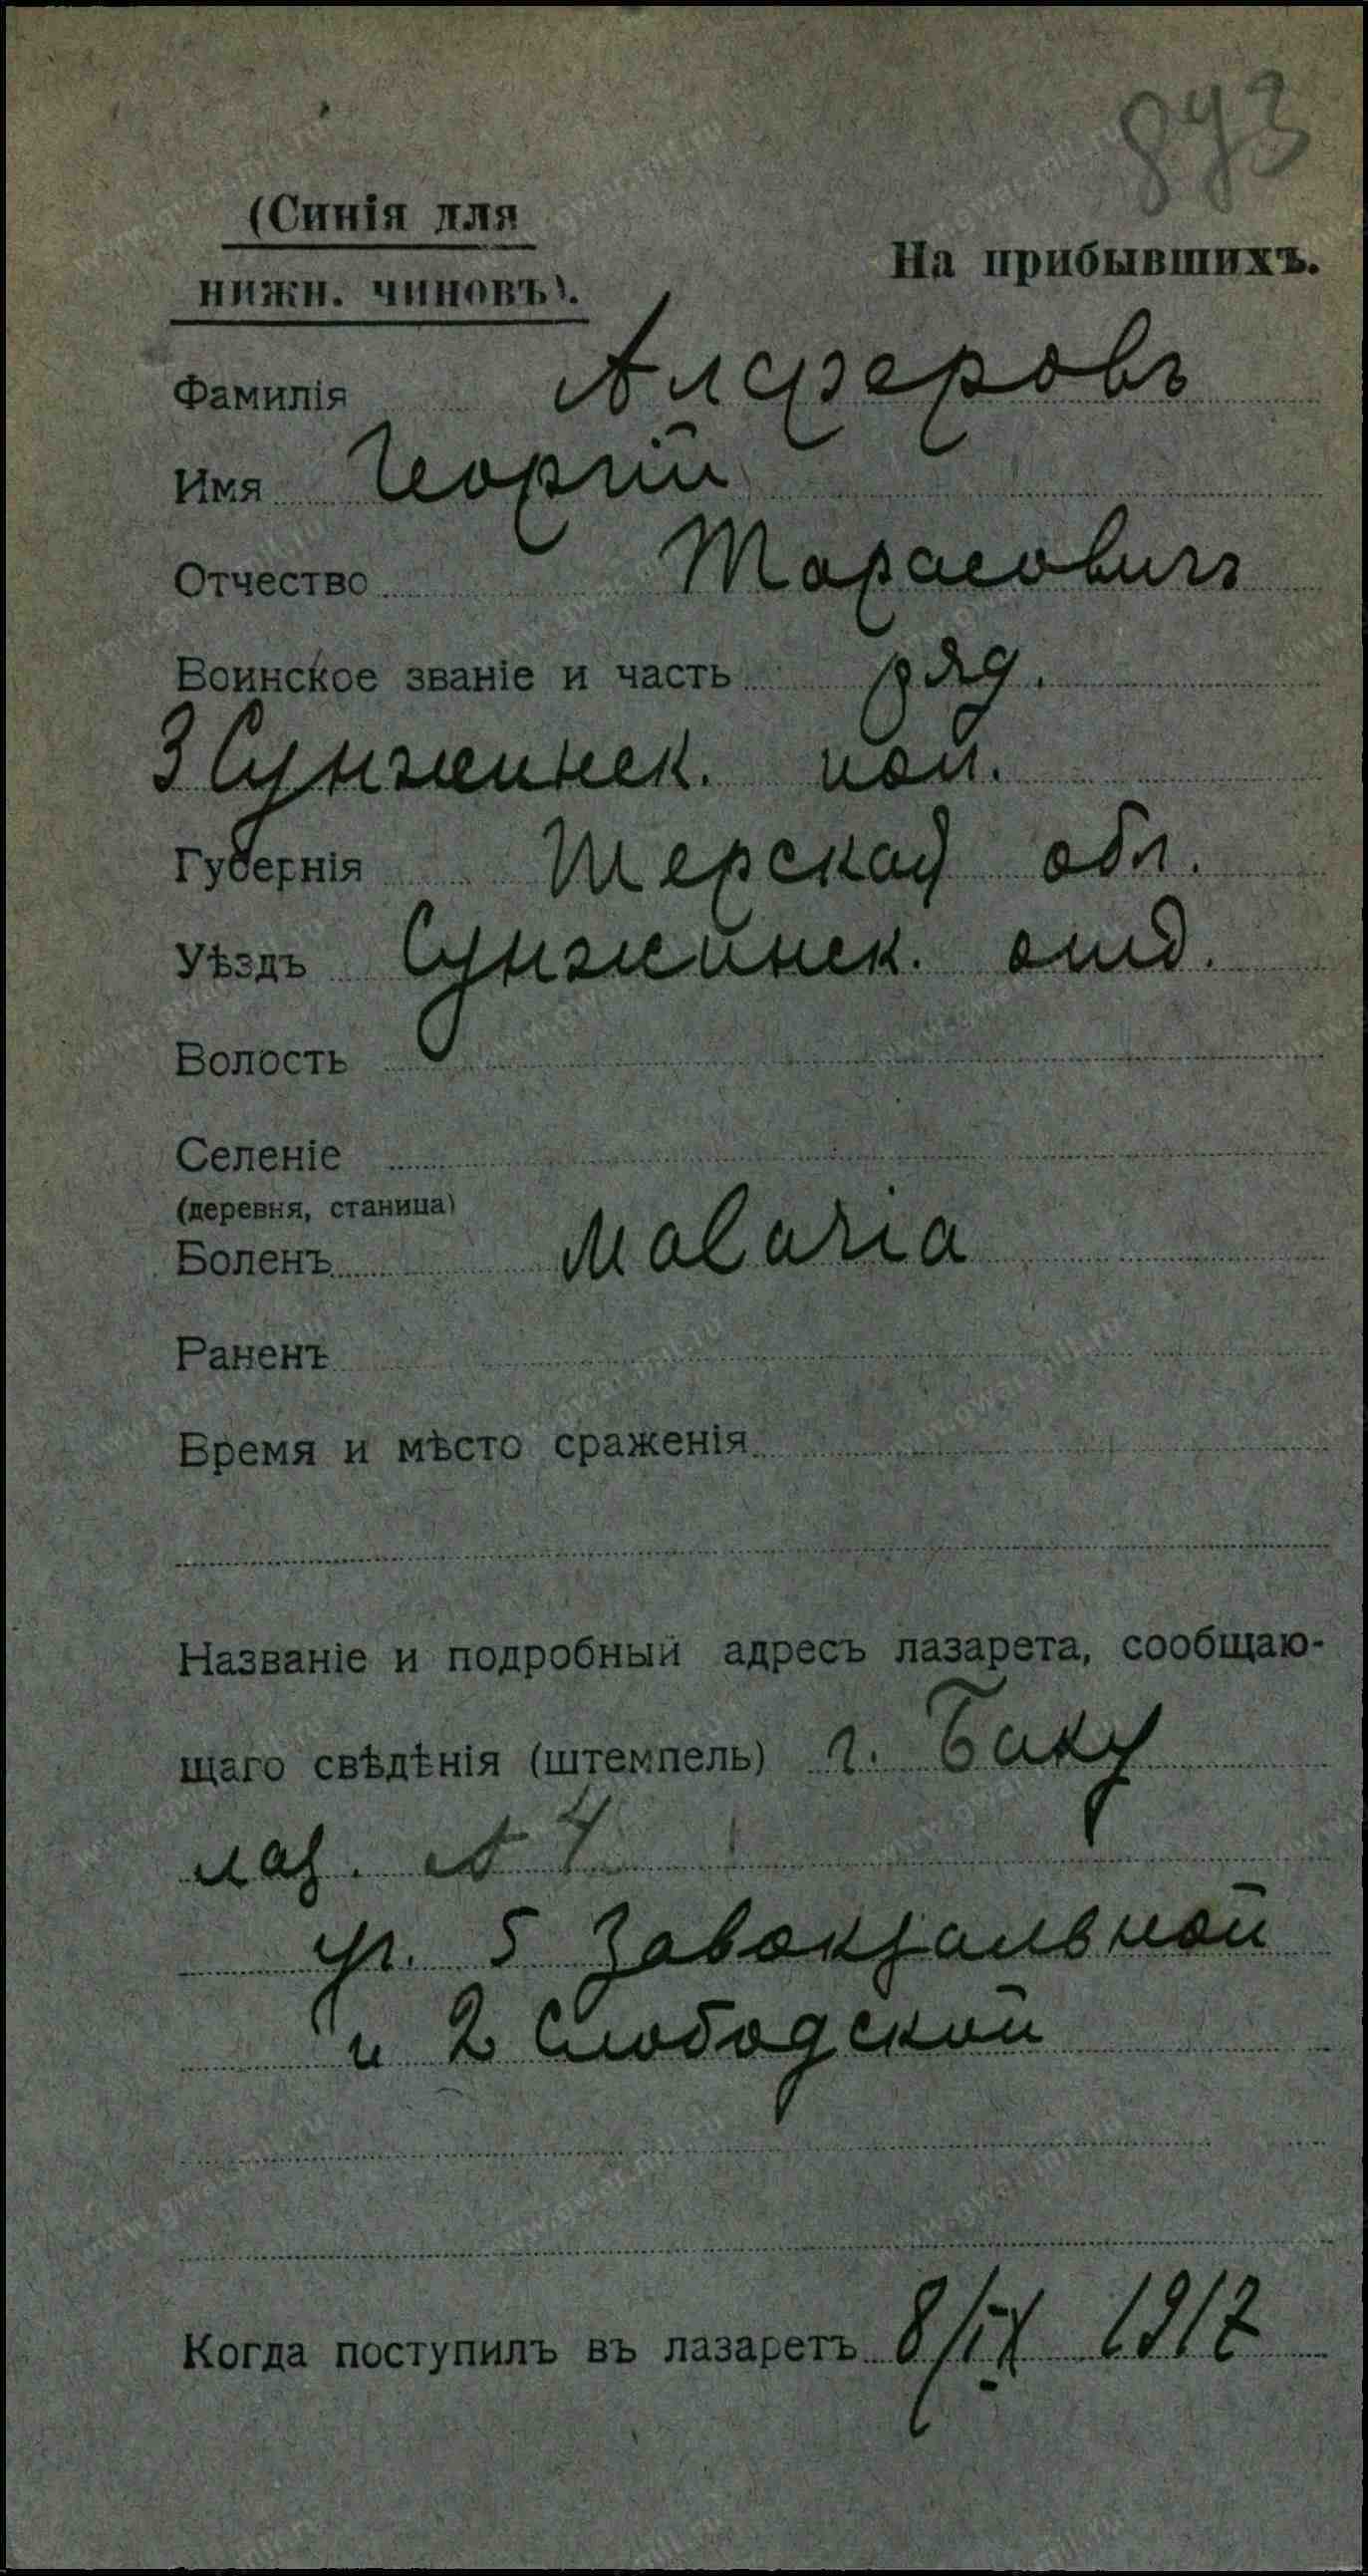 873
(Синія для
нижн. чиновъ).
На прибывшихъ.
Фамилія Алферовъ
Имя Георгій
Отчество Тарасовичъ
Воинское званіе и часть ряд.
3 Сунженск. пол.
Губернія Терской обл.
Уѣздъ Сунженск. отд.
Волость
Селеніе
(деревня, станица)
Боленъ Malaria
Раненъ
Время и мѣсто сраженія
Названіе и подробный адресъ лазарета, сообщаю-
щаго свѣдѣнія (штемпель) г. Баку
лаз. № 4
уг. 5 Завокзальной
и 2 Слободской
Когда поступилъ въ лазаретъ 8/IX 1917